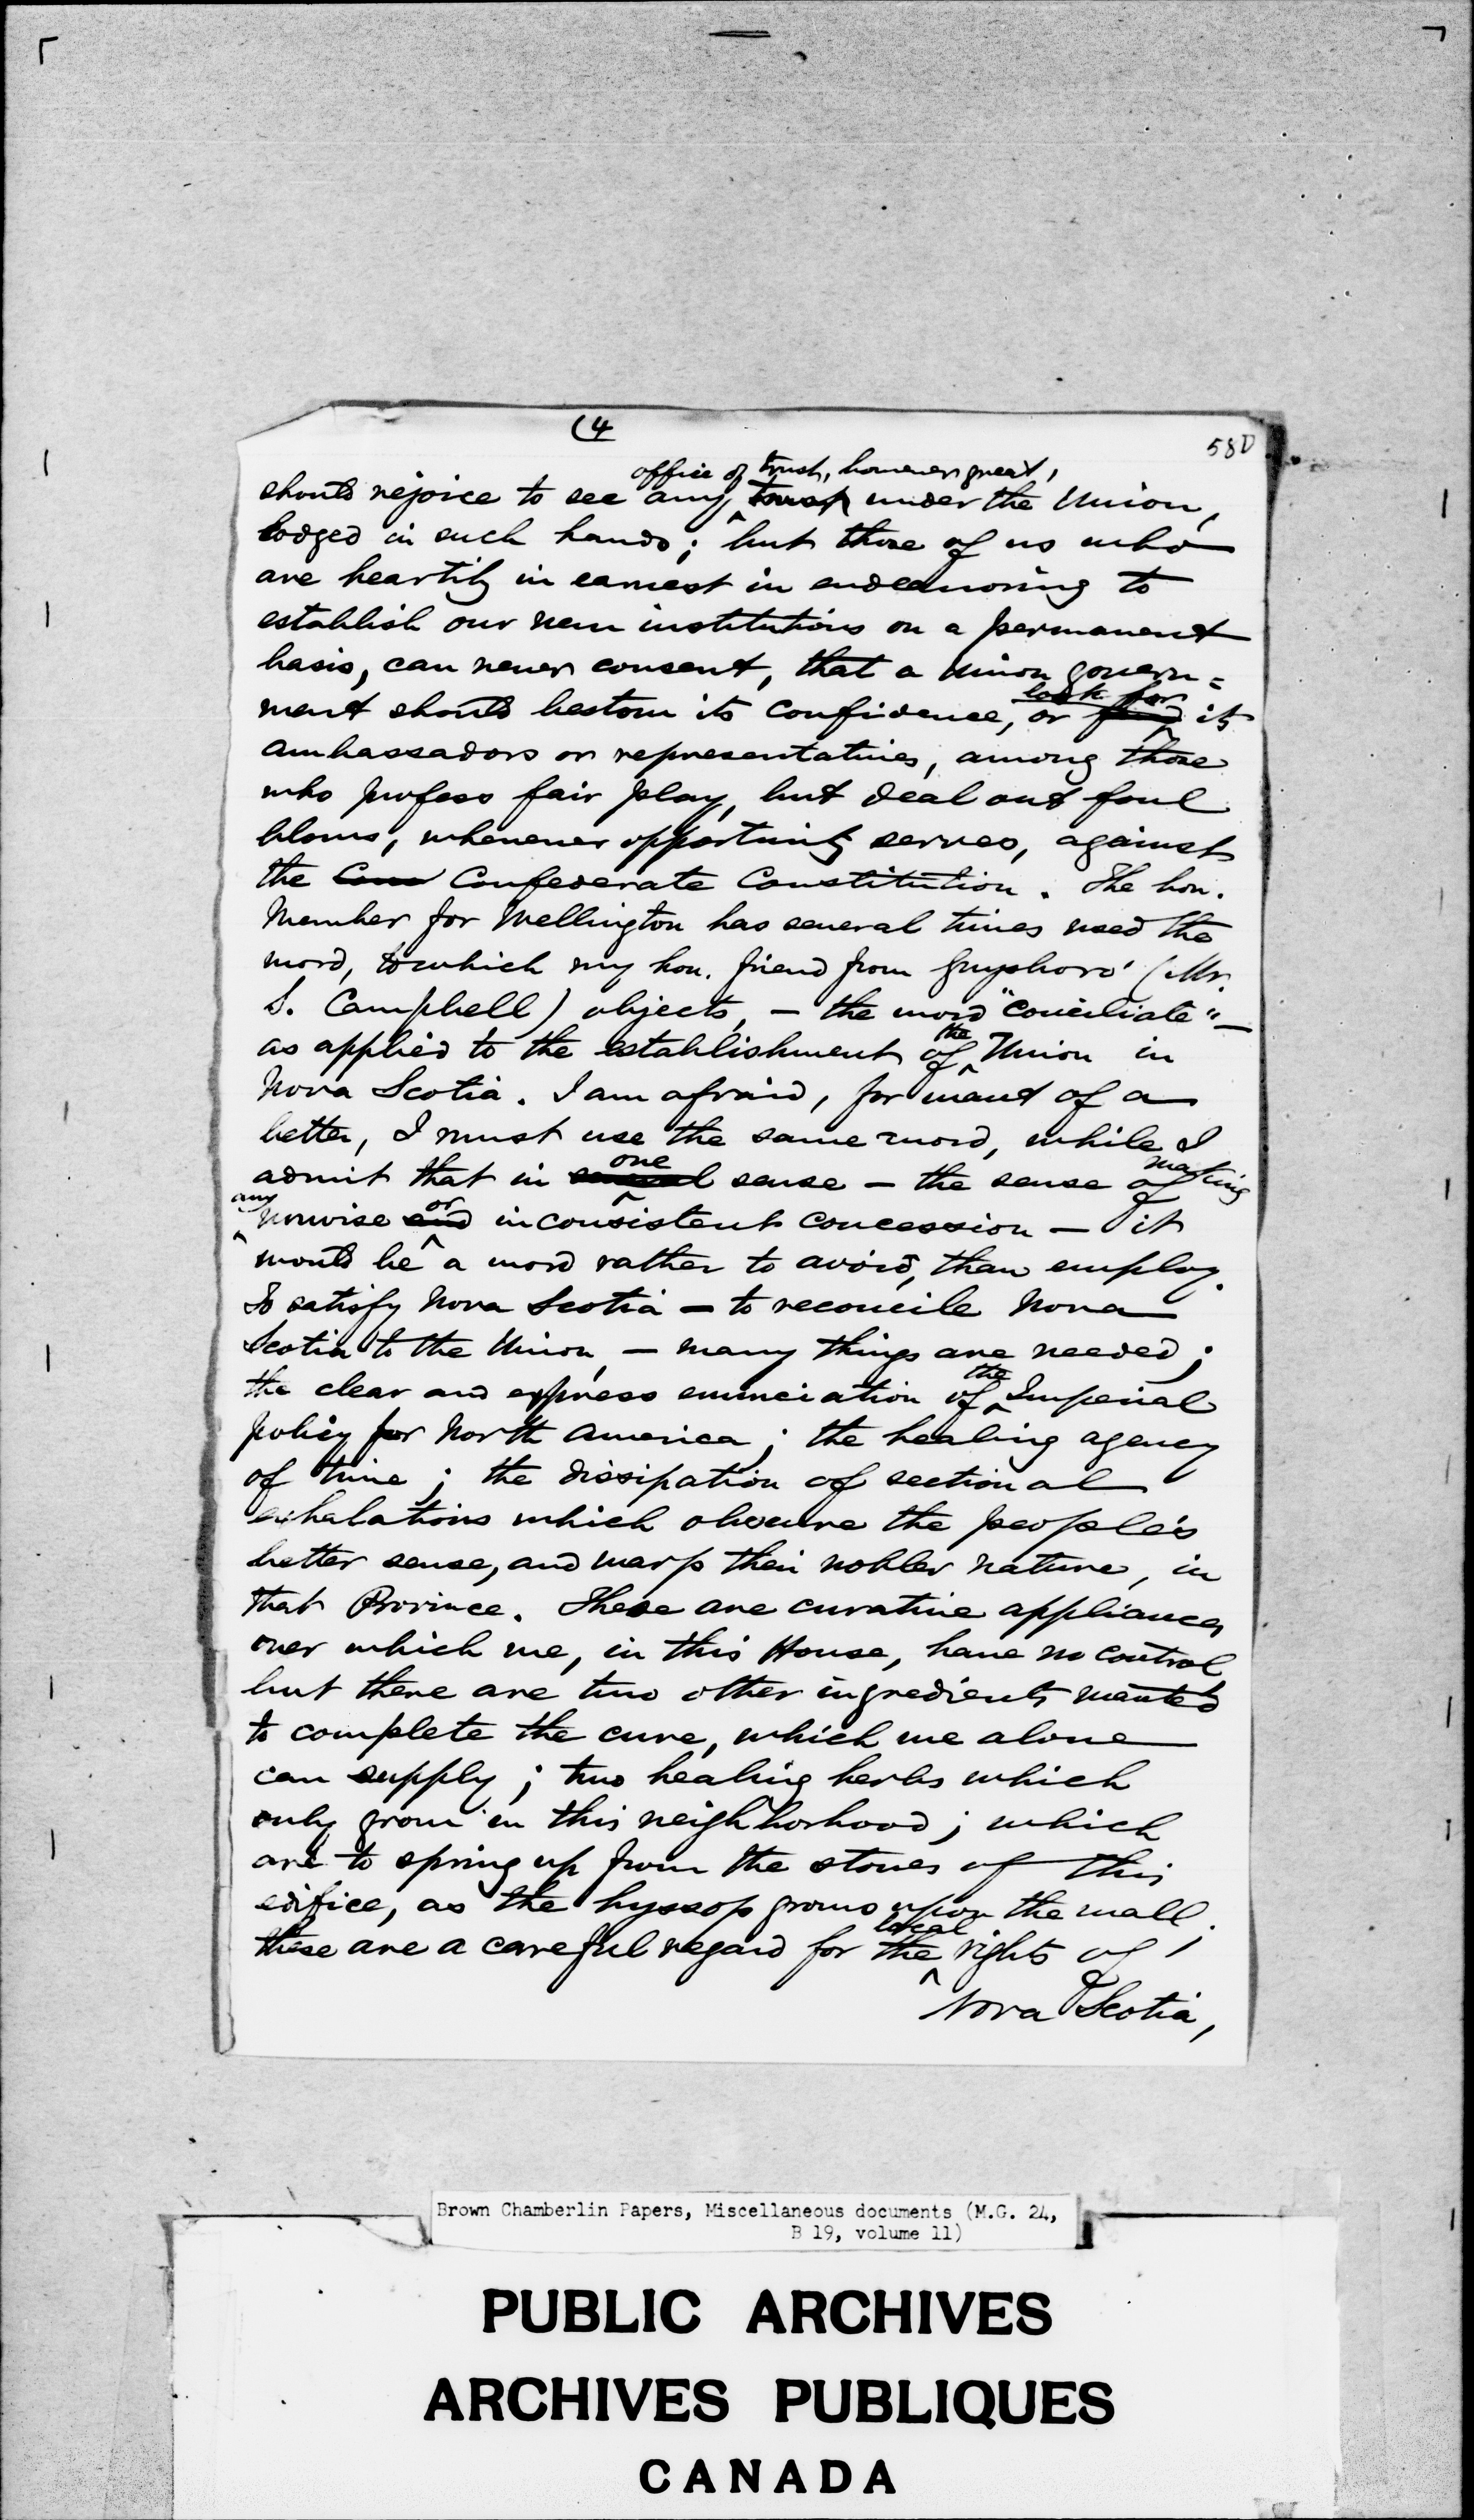 (4
58D
office of trust, however great,
should rejoice to see any under the Union,
lodged in such hands; but those of us who
are heartily in earnest in endeavoring to
establish our new institutions on a permanent
basis, can never consent, that a Union govern=
look for
ment should bestow its confidence, or find its
ambassadors or representatives, among those
who profess fair play, but deal out foul
blows, whenever opportunity serves, against
the Con Confederate Constitution. The hon.
Member for Wellington has several times used the
word, to which my hon. friend from Guysboro' (Mr.
S. Campbell) objects, - the word "conciliate" -
the
as applied to the establishment of Union in
Nova Scotia. I am afraid, for want of a
better, I must use the same word, while I
one making
admit that in several sense - the sense of
any or
unwise and inconsistent concession - it
would be a word rather to avoid, than employ.
To satisfy Nova Scotia - to reconcile Nova
Scotia to the Union, - many things are needed;
the
the clear and express enunciation of Imperial
policy for North America; the healing agency
of time; the dissipation of sectional
exhalations which obscure the people's
better sense, and warp their nobler nature, in
that Province. These are curative appliances
over which we, in this House, have no control
but there are two other ingredients wanted
to complete the cure, which we alone
can supply; two healing herbs which
only grow in this neighborhood; which
are to spring up from the stones of this
edifice, as the hyssop grows upon the wall;
local
these are a careful regard for the rights of
Nova Scotia,
Brown Chamberlin Papers, Miscellaneous documents (M.G. 24,
B 19, volume 11)
PUBLIC ARCHIVES
ARCHIVES PUBLIQUES
CANADA